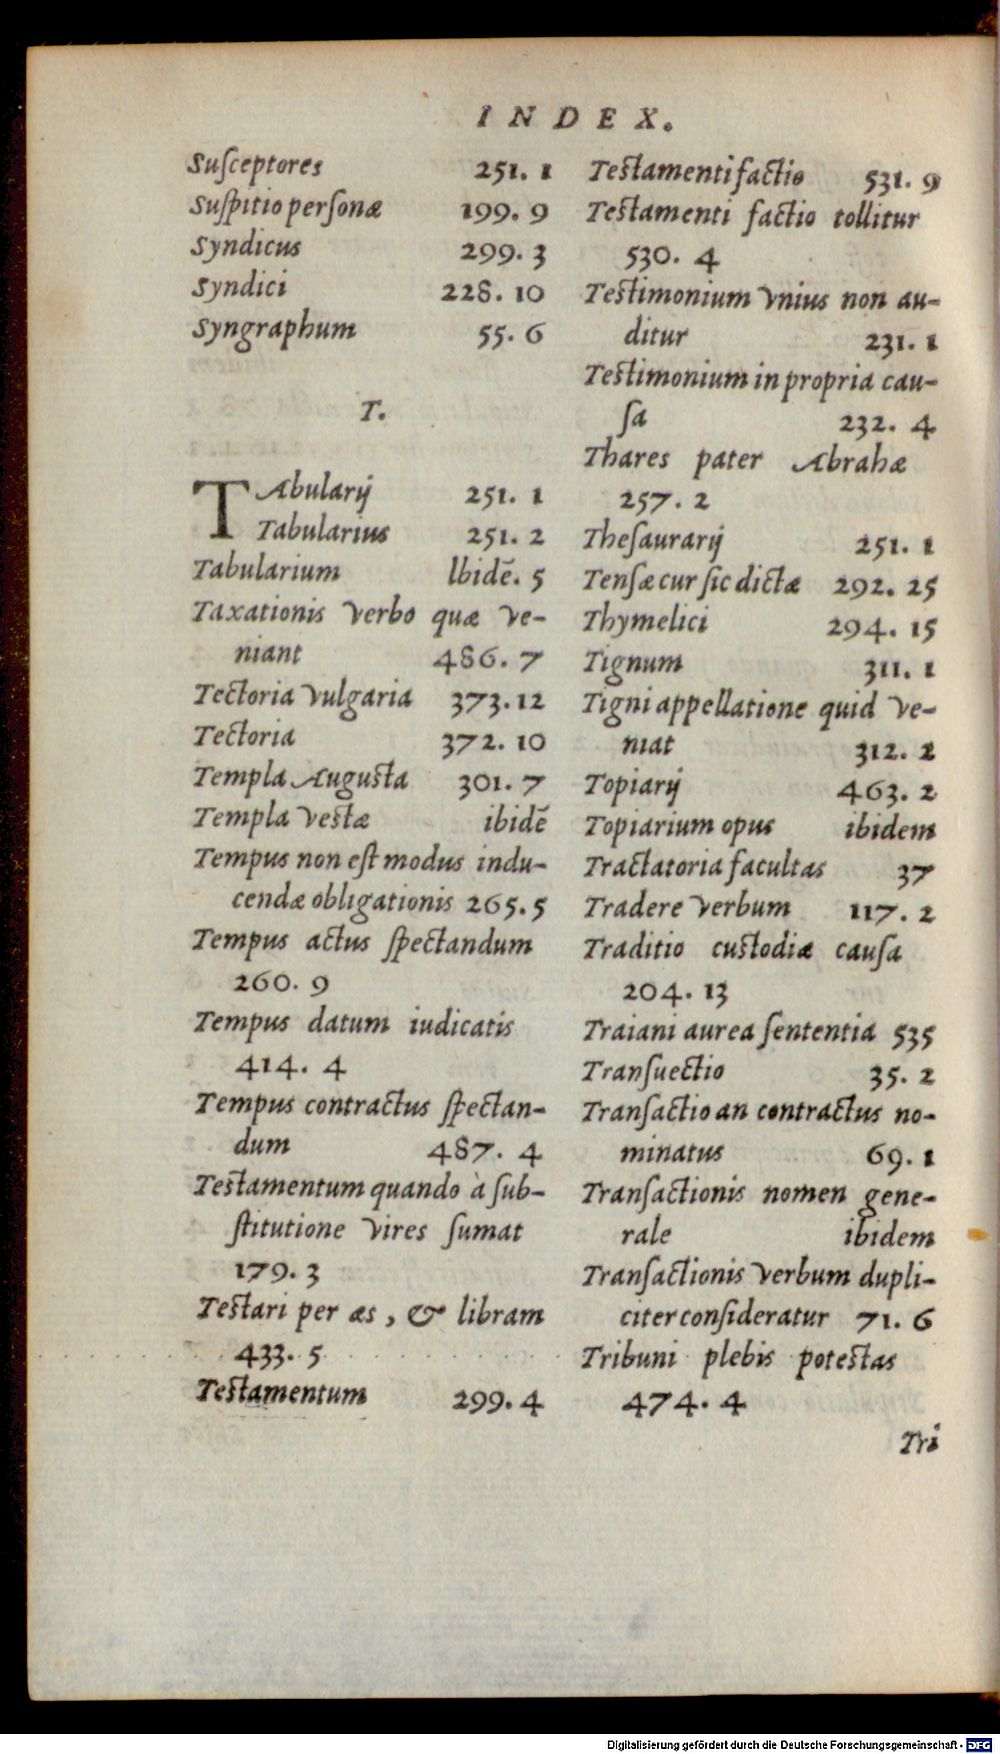 INDEX.
Suſceptores 251. 1
Suſpitio perſonæ 199. 9
Syndicus 299. 3
Syndici 228. 10
Syngraphum 55. 6
T.
TAbularij 251. 1
Tabularius 251. 2
Tabularium Ibidē. 5
Taxationis verbo quæ ve-
niant 486. 7
Tectoria vulgaria 373. 12
Tectoria 372. 10
Templa Augusta 301. 7
Templa vestæ ibidē
Tempus non eſt modus indu-
cendæ obligationis 265. 5
Tempus actus ſpectandum
260. 9
Tempus datum iudicatis
414. 4
Tempus contractus ſpectan-
dum 487. 4
Testamentum quando à ſub-
ſtitutione vires ſumat
179. 3
Testari per æs, & libram
433. 5
Testamentum 299. 4
Testamenti factio 531. 9
Testamenti factio tollitur
530. 4
Testimonium vnius non au-
ditur 231. 1
Testimonium in propria cau-
ſa 232. 4
Thares pater Abrahæ
257. 2
Theſaurarij 251. 1
Tenſæ cur ſic dictæ 292. 25
Thymelici 294. 15
Tignum 311. 1
Tigni appellatione quid ve-
niat 312. 2
Topiarij 463. 2
Topiarium opus ibidem
Tractatoria facultas 37
Tradere verbum 117. 2
Traditio custodiæ cauſa
204. 13
Traiani aurea ſententia 535
Tranſuectio 35. 2
Tranſactio an contractus no-
minatus 69. 1
Tranſactionis nomen gene-
rale ibidem
Tranſactionis verbum dupli-
citer conſideratur 71. 6
Tribuni plebis potestas
474. 4
Tri
Digitalisierung gefördert durch die Deutsche Forschungsgemeinschaft - DFG